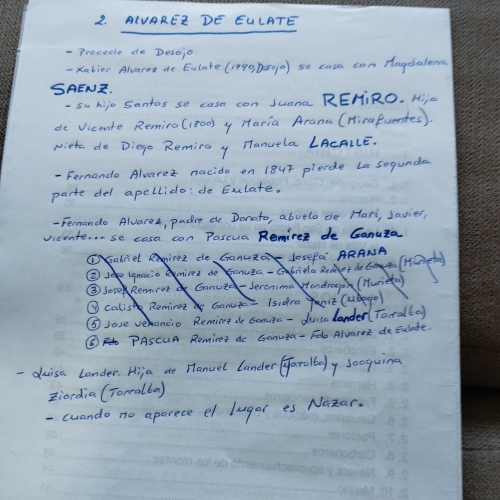 2. ALVAREZ DE EULATE
- Procede de Desojo.
- Xabier Alvarez de Eulate (1790, Desojo) se casa con Magdalena
SAENZ.
- Su hijo Santos se casa con Juana REMIRO. Hija
de Vicente Remiro (1800) y María Arana (Mirafuentes).
Nieta de Diego Remiro y Manuela LACALLE.
- Fernando Alvarez nacido en 1847 pierde la segunda
parte del apellido: de Eulate.
- Fernando Alvarez, padre de Donato, abuelo de Mari, Javier,
Vicente... se casa con Pascua Remirez de Ganuza
1 Gabriel Remirez de Ganuza - Josefa ARANA
2 Jose Ignacio Remirez de Ganuza - Gabriela Remirez de Ganuza (Murieta)
3 Josef Remirez de Ganuza - Jeronima Mondragon (Murieta)
4 Calisto Remirez de Ganuza - Isidra (Ubago)
5 Jose Venancio Remirez de Ganuza - Luisa Lander (Torralba)
6 PASCUA Remirez de Ganuza - Fdo Alvarez de Eulate.
- Luisa Lander. Hija de Manuel Lander (Torralba) y Joaquina
Ziordia (Torralba)
- Cuando no aparece el lugar es Nazar.